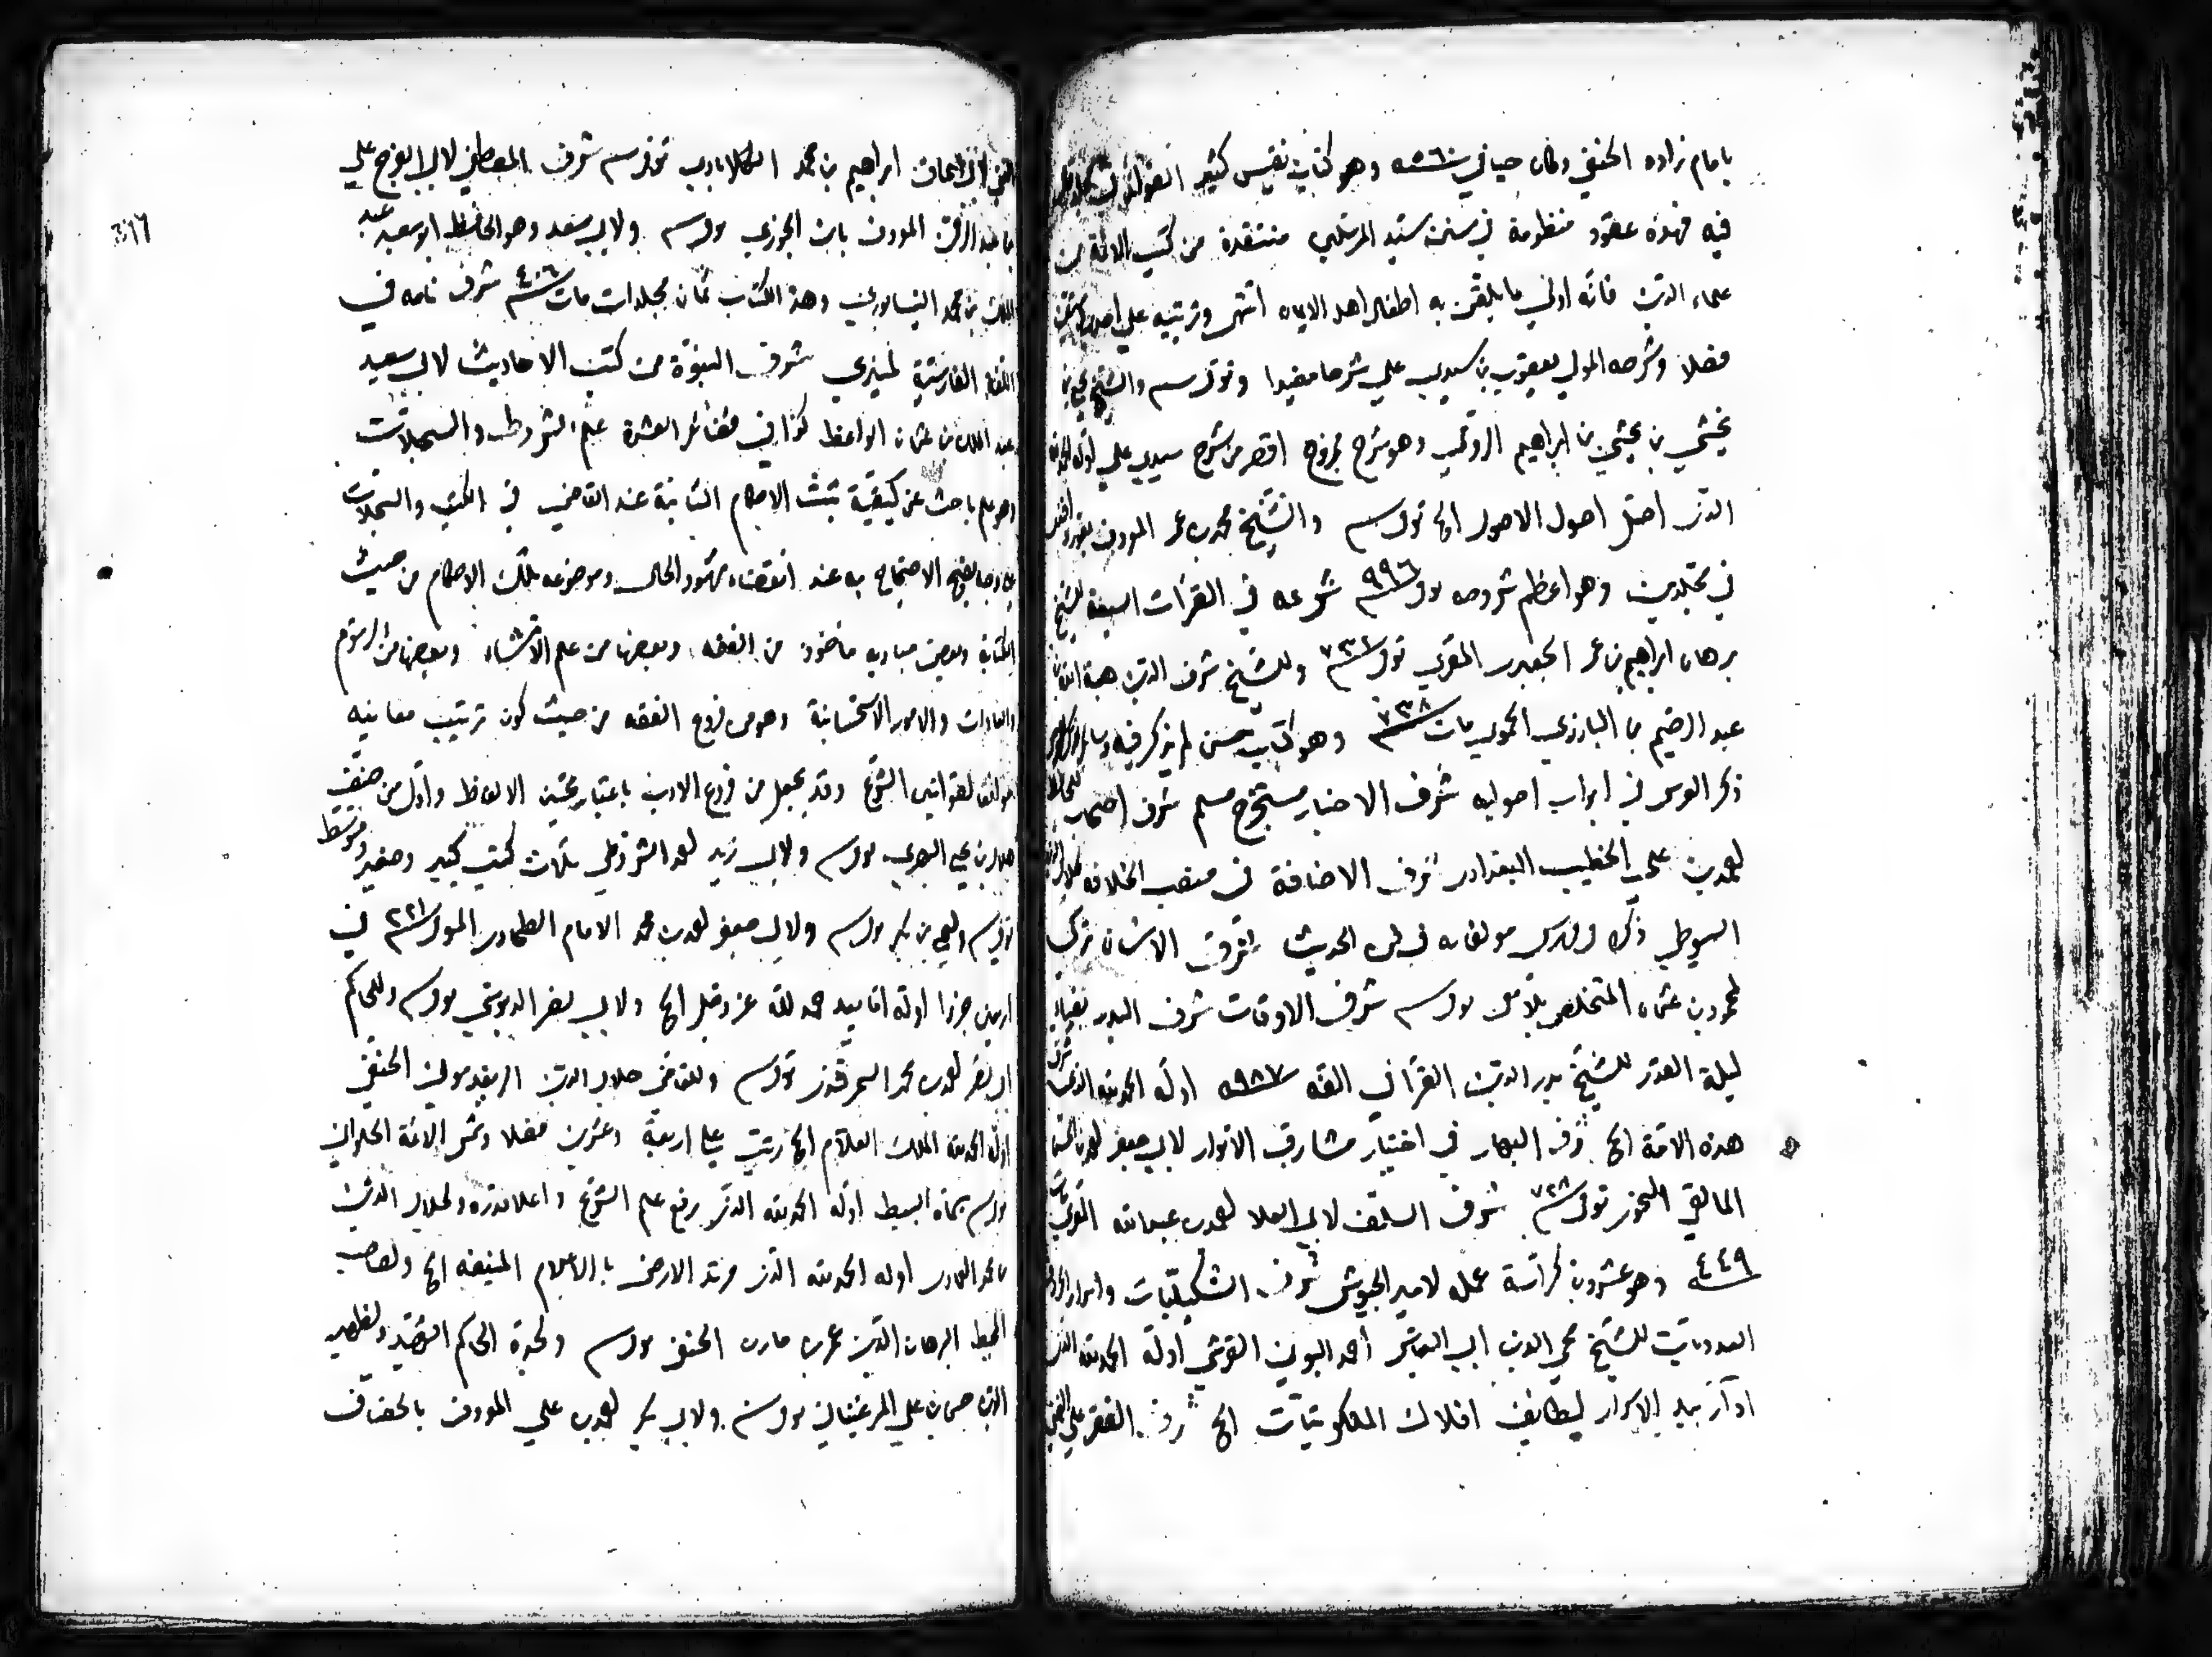 بامام زاده الحنفي وكان حيا في ٥٦٠ وهو كتاب نفيس كثير الفوائد في مجلد
فيه فهذه عقود منظومة في سنن سيد المرسلين منتقدة من كتب الائمة من
علماء الدين فانه اولى ما يلقن به اطفال اهل الايمان انتهى وترتيبه على احد وستين
فصلا وشرحه المولى يعقوب بن سيدي علي شرحا مفيدا وتوفي سنة والشيخ يحيى بن
يخشي بن ابراهيم الرومي وهو شرح ممزوج اقصر من شرح سيدي علي اوله الحمد لله
الذي اصل اصول الاصول الخ توفي سنة والشيخ محمد بن عمر المعروف بقورد افندي
في مجلدين وهو اعظم شروحه توفي ٩٩٦ شرعه في القرآت السبعة للشيخ
برهان ابراهيم بن عمر الجعبري المقري توفي ٧٣٢ وللشيخ شرف الدين هبة الله بن
عبد الرحيم بن البارزي الحموي مات ٧٣٨ وهو كتاب حسن لم يذكر فيه
ذكر الفرش في ابواب اصوليه شرف الاخبار مستخرج مسلم شرف اصحاب
احمد بن علي الخطيب البغدادي شرف الاضافة في منصب الخلافة
السيوطي ذكره في فهرس مؤلفاته في فن الحديث شرف الانسان تركي
لمحمود بن عثمان المتخلص بلامعي توفي سنة شرف الاوقات شرف البدر بضياء
ليلة القدر للشيخ بدر الدين القرافي الفه ٩٨٧ اوله الحمد لله الذي شرف
هذه الامة الخ شرف البهار في اختيار مشارق الانوار لابي جعفر احمد بن
المالقي النحوي توفي ٧٢٨ شرف السلف لابي العلا احمد بن عبد الله المعري مات
٤٤٩ وهو عشرون كراسة عمله لامير الجيوش شرف الشكيليات واسرار الحروف
العدديات للشيخ محي الدين ابي العباس احمد البوني القرشي اوله الحمد لله الذي
ادار بيد الاسرار لطايف افلاك الملكوتيات الخ شرف الفقر على الغني
ابراهيم بن محمد الكلابادي توفي سنة شرف المصطفى لابي الفرج علي
عبد الرحمن المعروف بابن الجوزي توفي سنة ولابي سعد وهو الحافظ ابو سعيد عبد
الملك بن محمد النيسابوري وهذا الكتاب ثمان مجلدات مات ٤٠٦ شرف نامه في
اللغة الفارسية لمنيري شرف النبوة من كتب الاحاديث لابي سعيد
عبد الملك بن عثمان الواعظ كذا في فضائل العشرة علم الشروط والسجلات
وهو علم باحث عن كيفية ثبت الاحكام الثابتة عند القاضي في الكتب والسجلات
على وجه يصح الاحتجاج به عند انقضاء شهود الحال وموضوعه تلك الاحكام من حيث
الكتابة وبعض مباديه ماخوذ من الفقه وبعضها من علم الانشاء وبعضها من الرسوم
والعادات والامور الاستحسانية وهو من فروع الفقه من حيث كون ترتيب معانيه
موافقا لقوانين الشرع وقد يجعل من فروع الادب باعتبار تحسين الالفاظ واول من صنف
هلال بن يحيى البصري توفي سنة ولابي زيد احمد الشروطي ثلاث كتب كبير وصغير ومتوسط
توفي سنة وليحيى بن بكر توفي سنة ولابي جعفر احمد بن محمد الامام الطحاوي المتوفى ٣٢١ في
اربعين جزءا اوله اما بيد حمد لله عز وجل الخ ولابي نصر الدبوسي توفي سنة وللحاكم
ابي نصر احمد بن محمد السمرقندي توفي سنة وللقاضي جلال الدين الريغدموني الحنفي
اوله الحمد لله الملك العلام الخ رتب على اربعة وعشرين فصلا وشمس الائمة الحلواني
توفي سنة سماه البسيط اوله الحمد لله الذي رفع علم الشرع واعلا قدره ولجلال الدين
بن محمد العمادي اوله الحمد لله الذي مهد الارض بالاعلام المنيفه الخ ولصاحب
المحيط البرهان الدين عمر بن مازه الحنفي توفي سنة ولحمزة الحاكم الشهيد ولظهير
الدين حسن بن علي المرغيناني توفي سنة ولابي بكر احمد بن علي المعروف بالخصاف